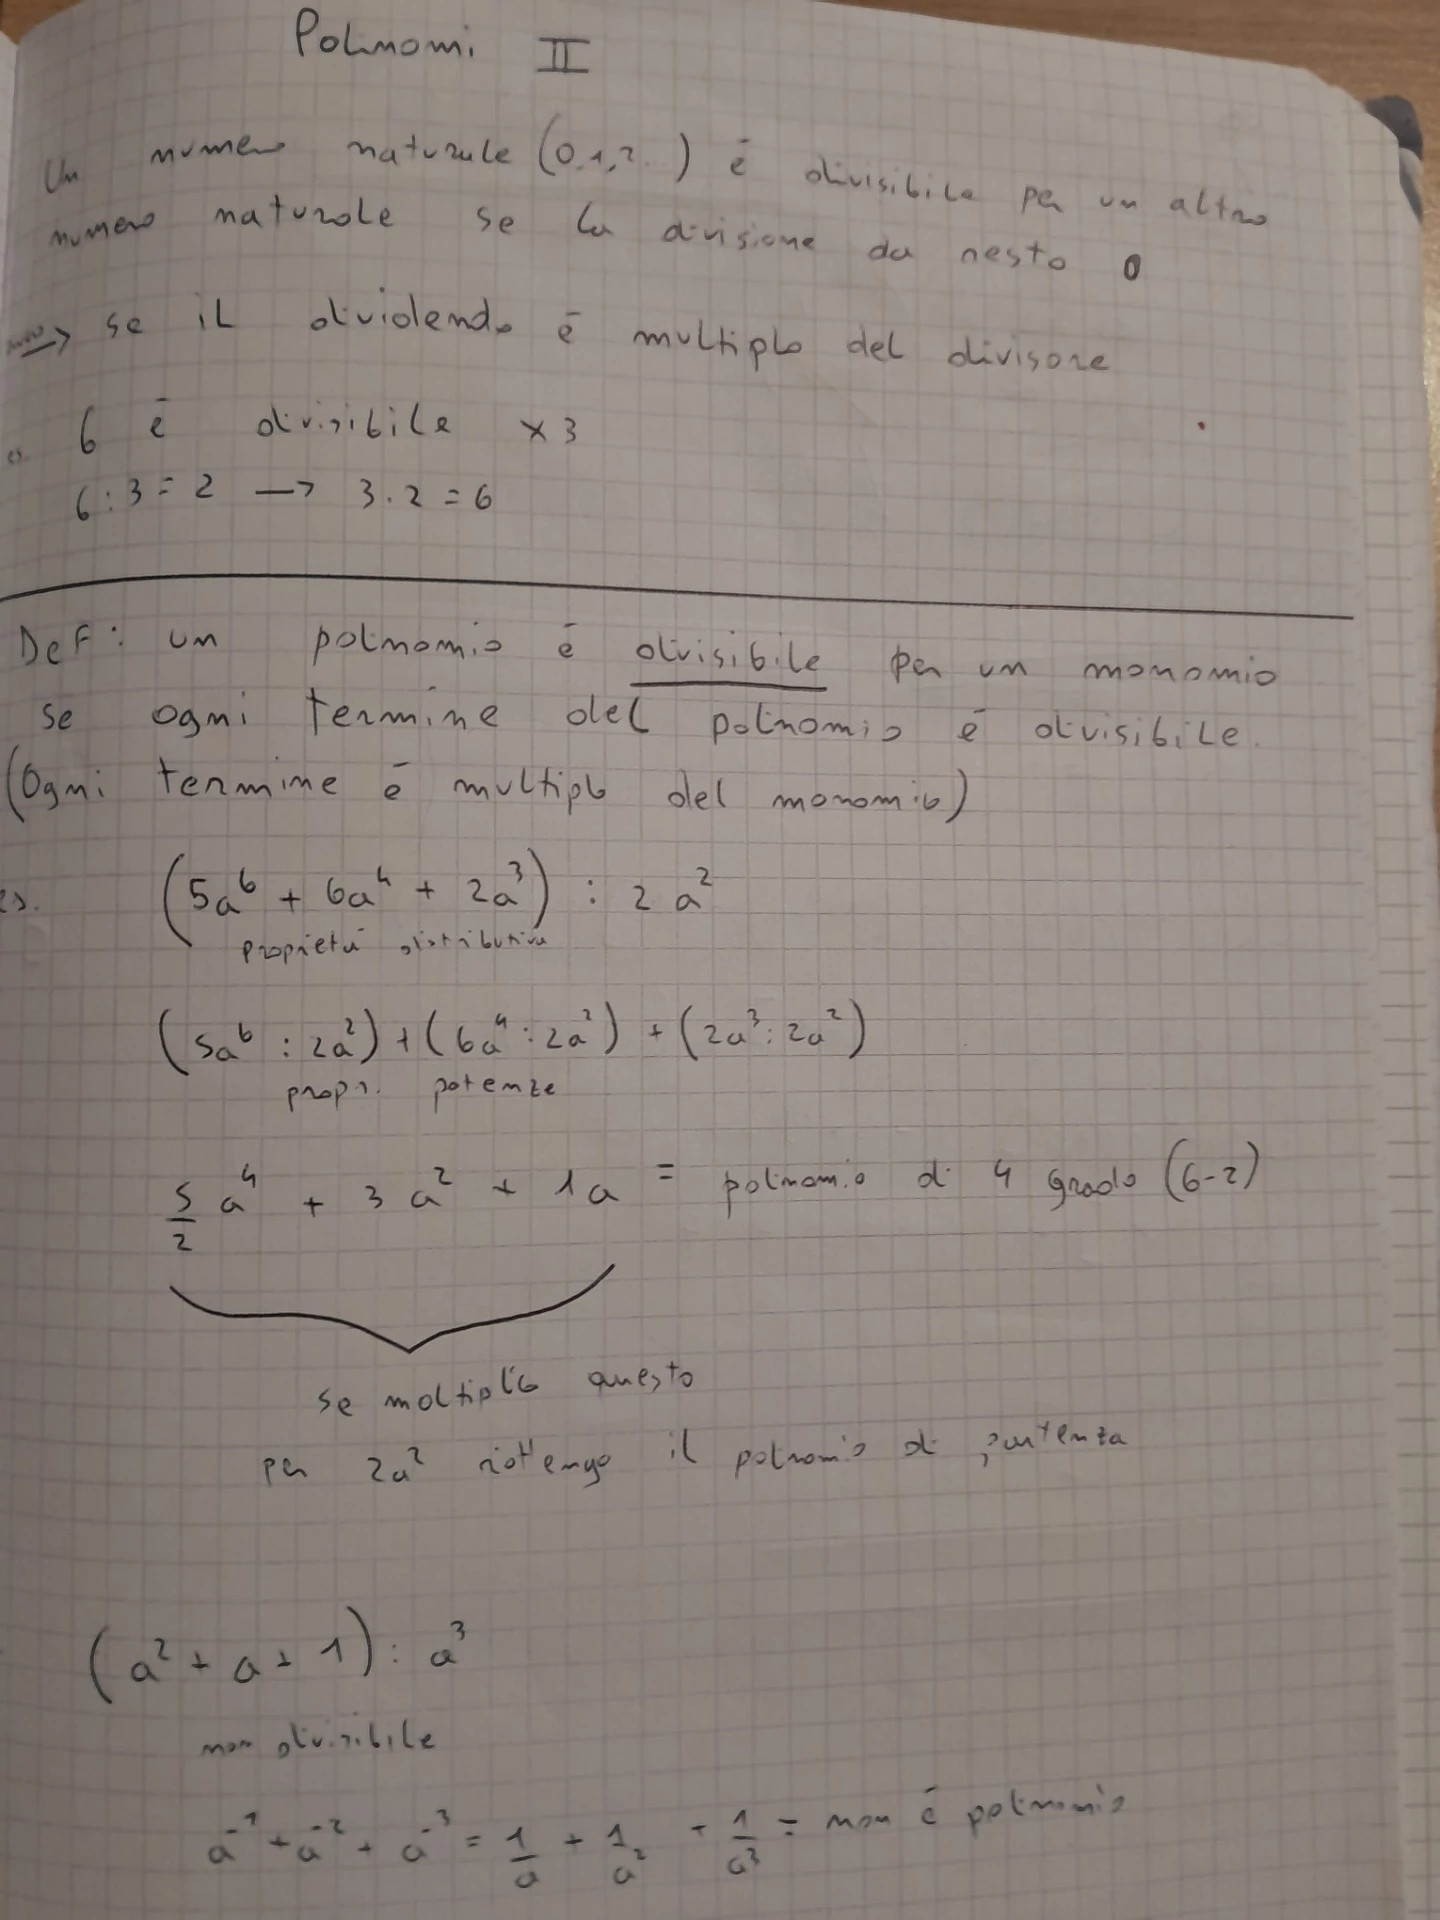 Polinomi II
Un numero naturale (0,1,2...) é divisibile per un altro
numero naturale se la divisione da resto 0
→ se il dividendo é multiplo del divisore
6 é divisibile x 3
6:3=2 → 3·2=6
DeF: un polinomio é divisibile per un monomio
se ogni termine del polinomio é divisibile.
(Ogni termine é multiplo del monomio)
es. (5a⁶ + 6a⁴ + 2a³) : 2a²
proprietá distributiva
(5a⁶ : 2a²) + (6a⁴ : 2a²) + (2a³ : 2a²)
propr. potenze
5/2 a⁴ + 3a² + 1a = polinomio di 4 grado (6-2)
se moltiplico questo
per 2a² riottengo il polinomio di partenza
(a² + a + 1) : a³
non divisibile
a⁻¹ + a⁻² + a⁻³ = 1/a + 1/a² + 1/a³ = non é polinomio